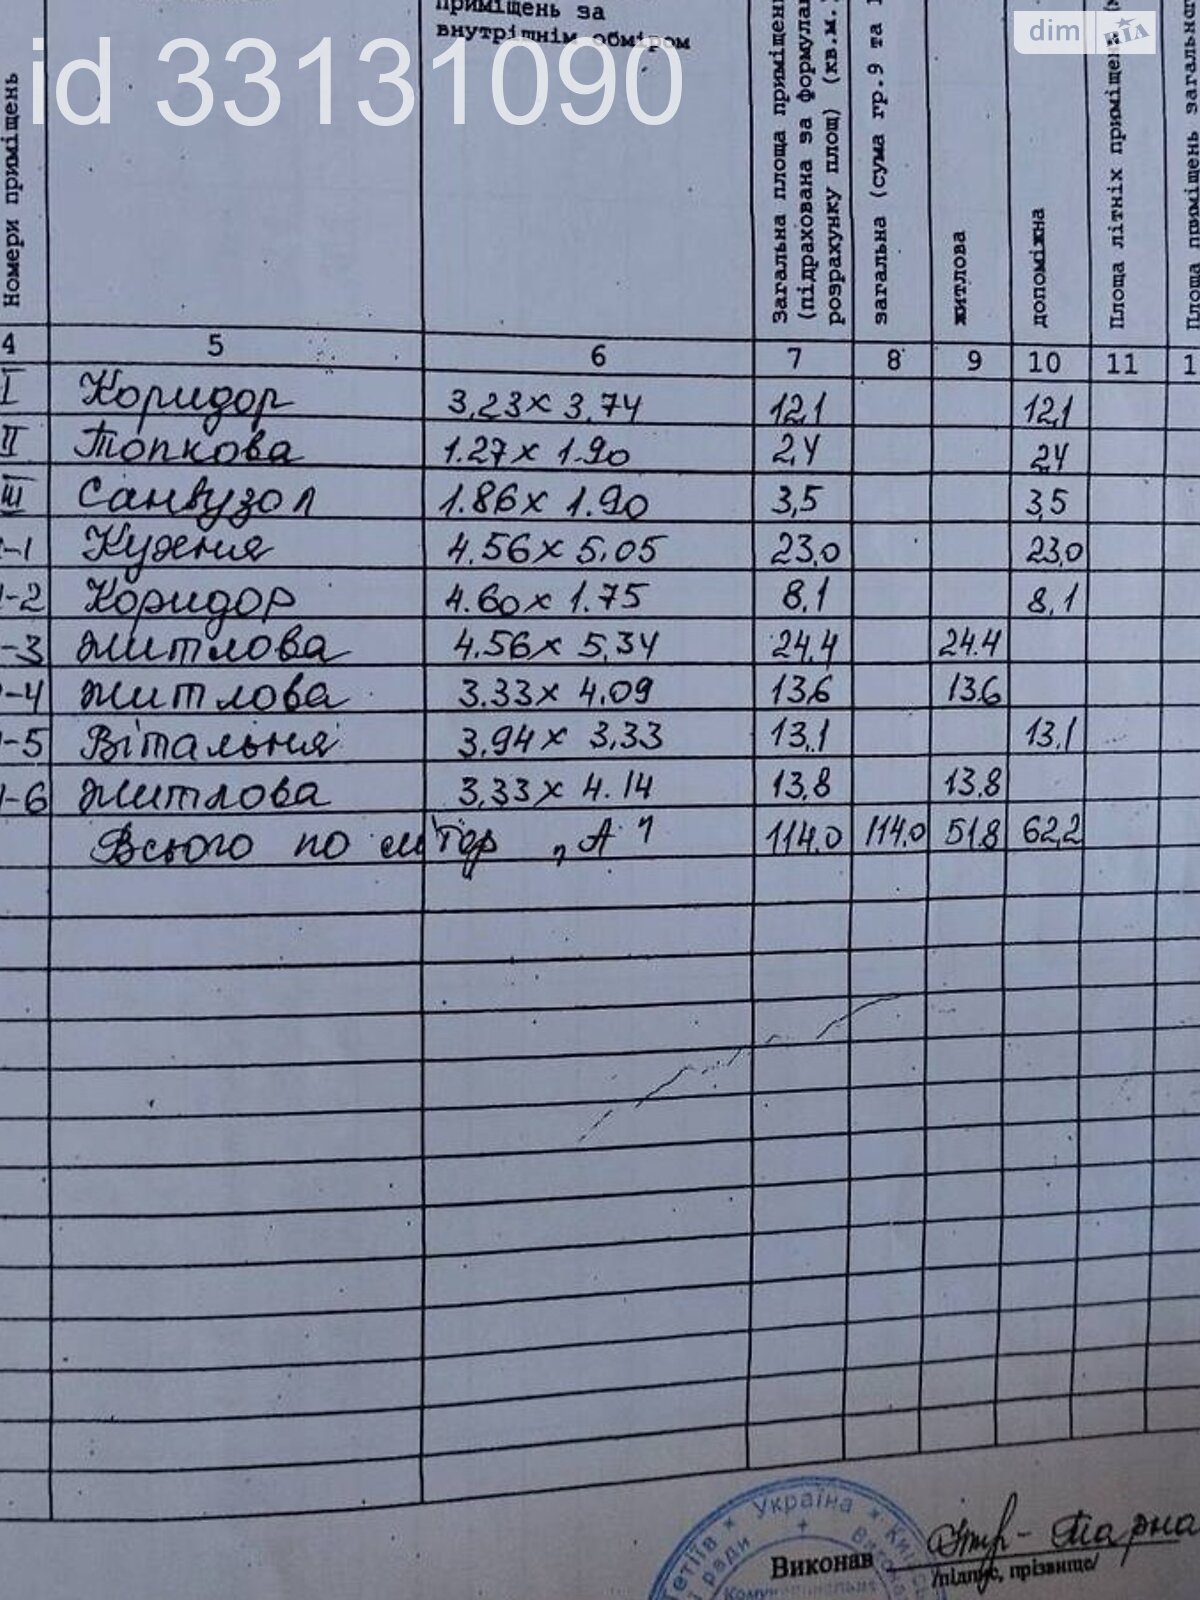 id 33131090
dim RIA
Номери приміщень
приміщень за
внутрішнім обміром
Загальна площа приміщен
(підрахована за формулам
розрахунку площ) (кв.м.)
загальна (сума гр.9 та 1
житлова
допоміжна
Площа літніх приміщен
Площа приміщень загальног
4 5 6 7 8 9 10 11 1
I Коридор 3,23 x 3,74 12,1 12,1
II Топкова 1.27 x 1.90 2,4 2,4
III Санвузол 1.86 x 1.90 3,5 3,5
-1 Кухня 4.56 x 5.05 23,0 23,0
-2 Коридор 4.60 x 1.75 8,1 8,1
-3 житлова 4.56 x 5,34 24,4 24.4
-4 житлова 3.33 x 4.09 13,6 13.6
-5 Вітальня 3,94 x 3,33 13,1 13,1
-6 житлова 3,33 x 4.14 13,8 13,8
Всього по літер „А" 114.0 114.0 51.8 62,2
Тетіїв * Україна * Киї
ради + Викона
Виконав
/підпис, прізвище/